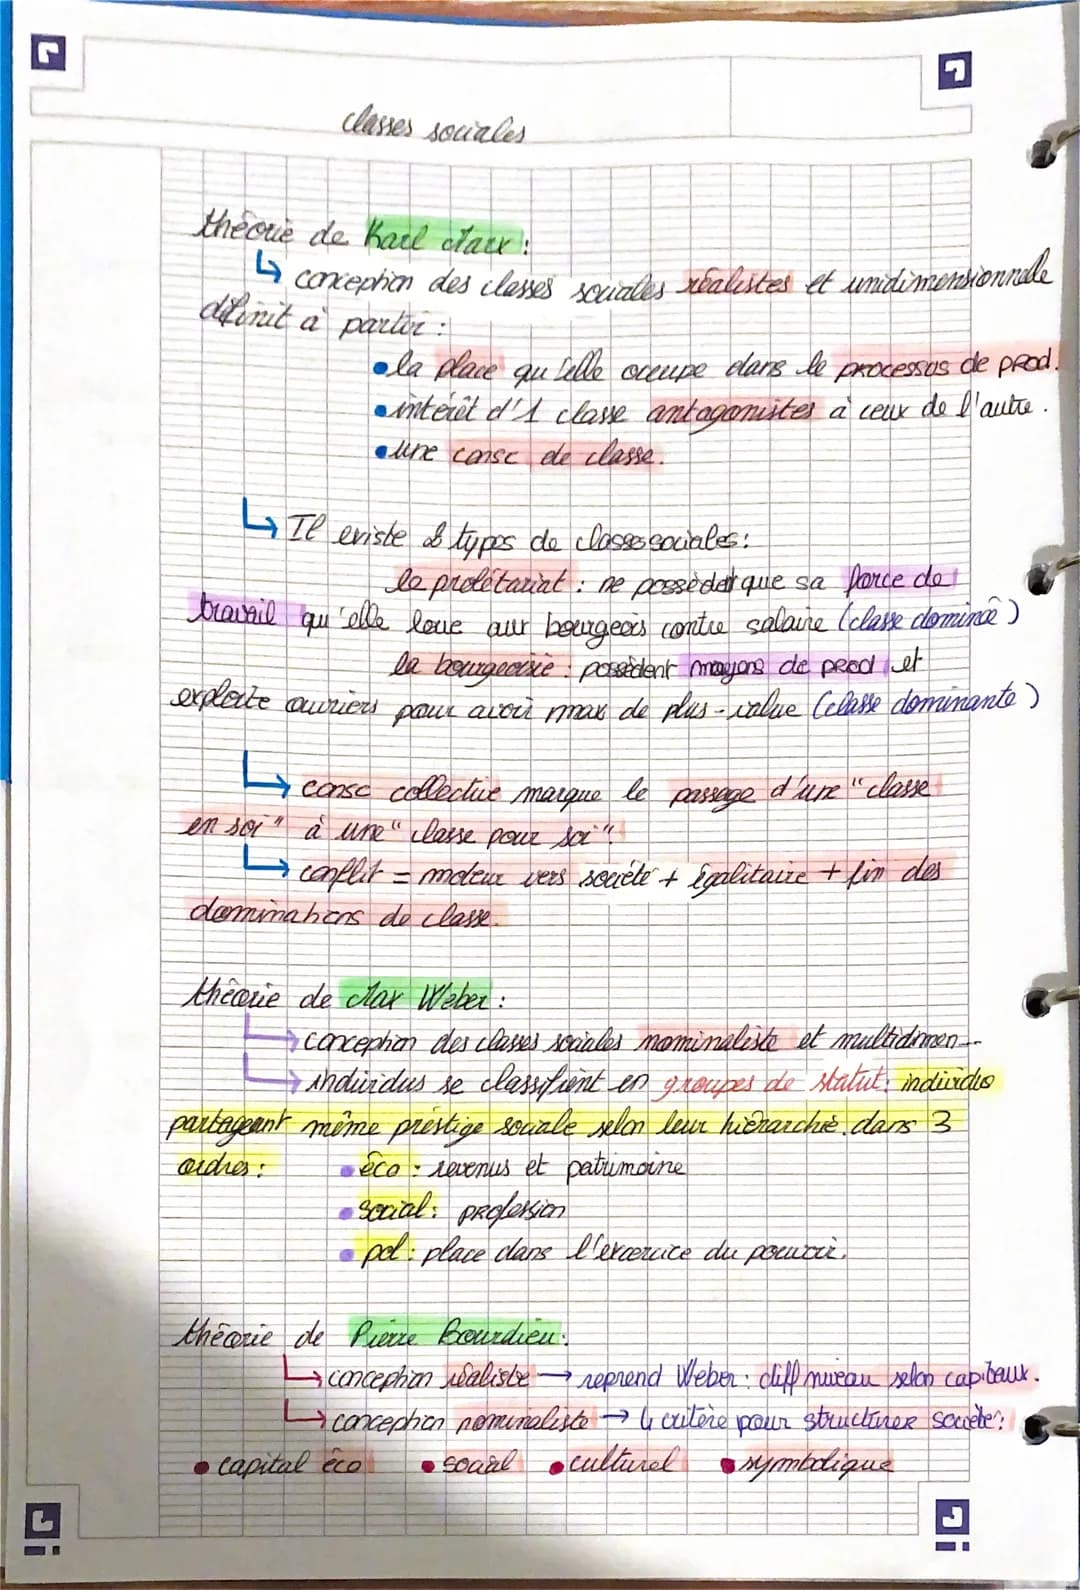 classes sociales
théorie de Karl Marx :
↳ conception des classes sociales réalistes et unidimensionnelle
définit à partir :
• la place qu'elle occupe dans le processus de prod.
• intérêt d'1 classe antagonistes à ceux de l'autre.
• une consc de classe.
↳ Il existe 2 types de classes sociales :
le prolétariat : ne possèdent que sa force de
travail qu'elle loue aux bourgeois contre salaire (classe dominée)
la bourgeoisie : possèdent moyens de prod et
exploite ouvriers pour avoir max de plus-value (classe dominante)
↳ consc collective marque le passage d'une "classe
en soi" à une "classe pour soi".
↳ conflit = moteur vers société + égalitaire + fin des
dominations de classe.
théorie de Max Weber :
↳ conception des classes sociales nominaliste et multidimen...
↳ individus se classifient en groupes de statut : individus
partageant même prestige sociale selon leur hiérarchie dans 3
ordres :
• éco : revenus et patrimoine
• social : profession
• pol : place dans l'exercice du pouvoir.
théorie de Pierre Bourdieu :
↳ conception réaliste → reprend Weber : diff niveau selon capitaux.
↳ conception nominaliste → 4 critère pour structurer société :
• capital éco • social • culturel • symbolique